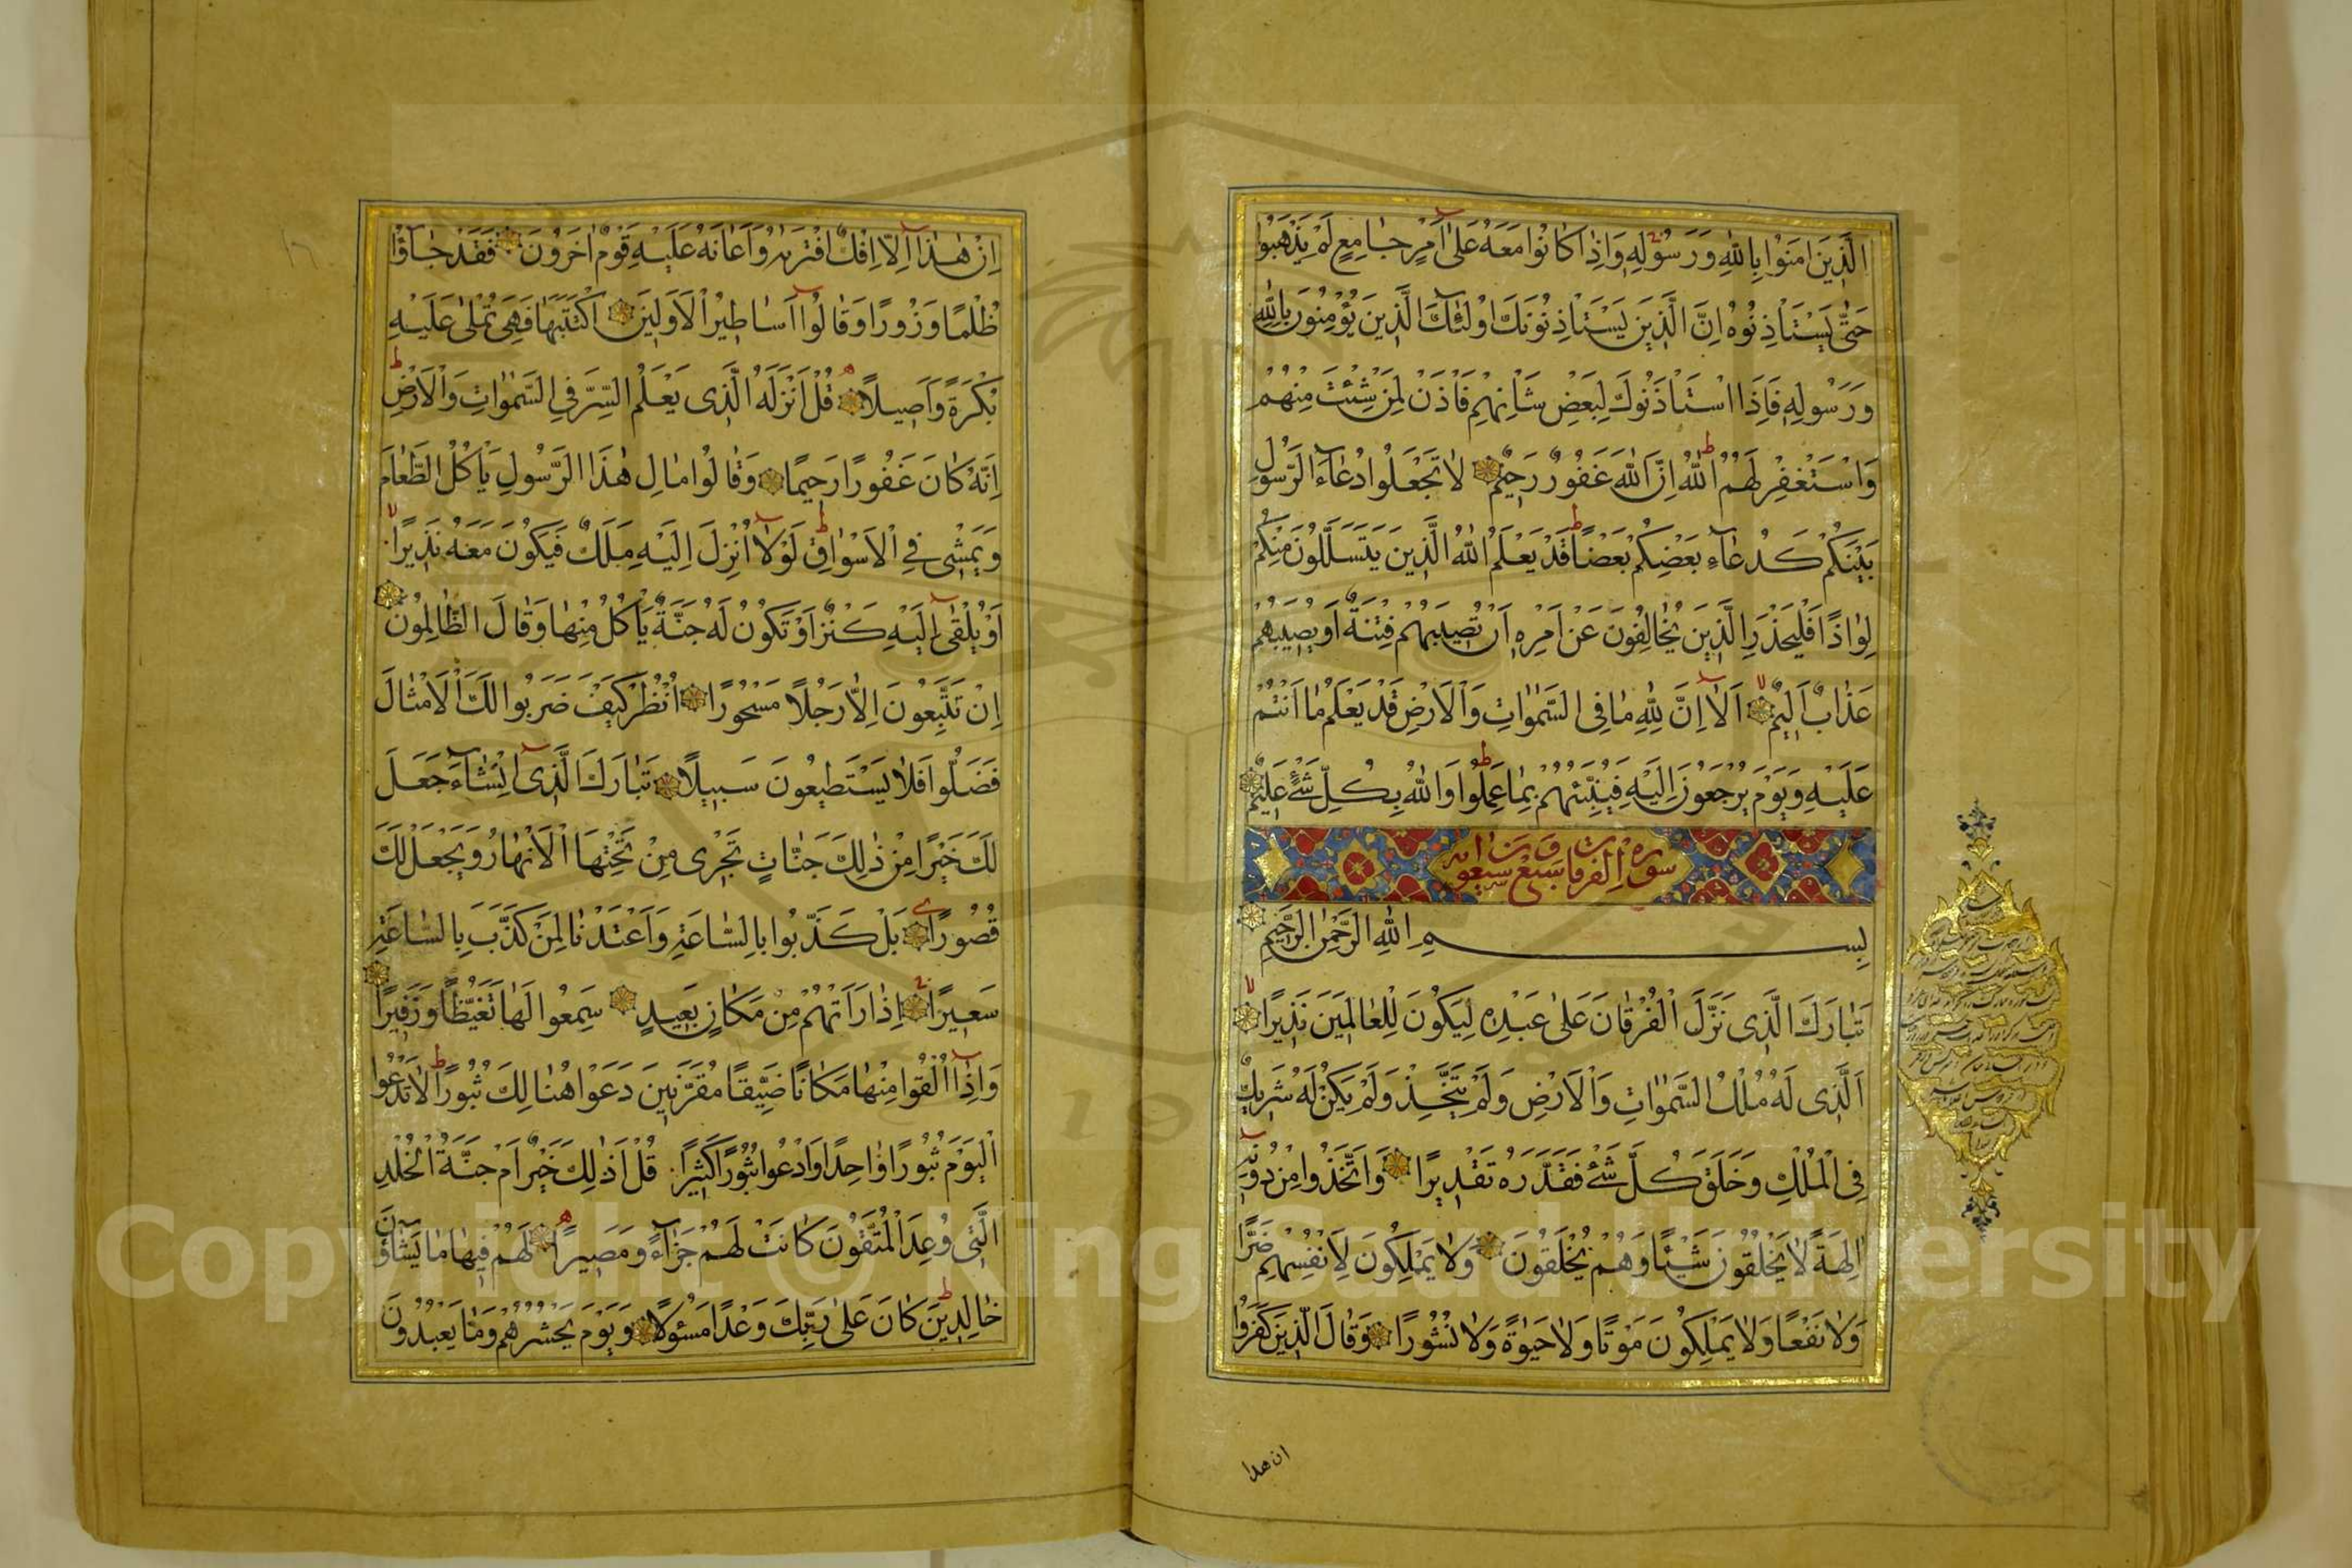 الَّذِينَ اٰمَنُوا بِاللّٰهِ وَرَسُولِهِ وَاِذَا كَانُوا مَعَهُ عَلٰى اَمْرٍ جَامِعٍ لَمْ يَذْهَبُوا
حَتّٰى يَسْتَأْذِنُوهُ اِنَّ الَّذِينَ يَسْتَأْذِنُونَكَ اُولٰئِكَ الَّذِينَ يُؤْمِنُونَ بِاللّٰهِ
وَرَسُولِهِ فَاِذَا اسْتَأْذَنُوكَ لِبَعْضِ شَأْنِهِمْ فَأْذَنْ لِمَنْ شِئْتَ مِنْهُمْ
وَاسْتَغْفِرْ لَهُمُ اللّٰهَ اِنَّ اللّٰهَ غَفُورٌ رَحِيمٌ لَا تَجْعَلُوا دُعَاءَ الرَّسُولِ
بَيْنَكُمْ كَدُعَاءِ بَعْضِكُمْ بَعْضًا قَدْ يَعْلَمُ اللّٰهُ الَّذِينَ يَتَسَلَّلُونَ مِنْكُمْ
لِوَاذًا فَلْيَحْذَرِ الَّذِينَ يُخَالِفُونَ عَنْ اَمْرِهِ اَنْ تُصِيبَهُمْ فِتْنَةٌ اَوْ يُصِيبَهُمْ
عَذَابٌ اَلِيمٌ اَلَا اِنَّ لِلّٰهِ مَا فِى السَّمٰوَاتِ وَالْاَرْضِ قَدْ يَعْلَمُ مَا اَنْتُمْ
عَلَيْهِ وَيَوْمَ يُرْجَعُونَ اِلَيْهِ فَيُنَبِّئُهُمْ بِمَا عَمِلُوا وَاللّٰهُ بِكُلِّ شَىْءٍ عَلِيمٌ
سورة الفرقان سبع وسبعون اية
بِسْمِ اللّٰهِ الرَّحْمٰنِ الرَّحِيمِ
تَبَارَكَ الَّذِى نَزَّلَ الْفُرْقَانَ عَلٰى عَبْدِهِ لِيَكُونَ لِلْعَالَمِينَ نَذِيرًا
اَلَّذِى لَهُ مُلْكُ السَّمٰوَاتِ وَالْاَرْضِ وَلَمْ يَتَّخِذْ وَلَمْ يَكُنْ لَهُ شَرِيكٌ
فِى الْمُلْكِ وَخَلَقَ كُلَّ شَىْءٍ فَقَدَّرَهُ تَقْدِيرًا وَاتَّخَذُوا مِنْ دُونِهِ
اٰلِهَةً لَا يَخْلُقُونَ شَيْئًا وَهُمْ يُخْلَقُونَ وَلَا يَمْلِكُونَ لِاَنْفُسِهِمْ ضَرًّا
وَلَا نَفْعًا وَلَا يَمْلِكُونَ مَوْتًا وَلَا حَيٰوةً وَلَا نُشُورًا وَقَالَ الَّذِينَ كَفَرُوا
ان هذا
اِنْ هٰذَا اِلَّا اِفْكٌ افْتَرٰيهُ وَاَعَانَهُ عَلَيْهِ قَوْمٌ اٰخَرُونَ فَقَدْ جَاؤُا
ظُلْمًا وَزُورًا وَقَالُوا اَسَاطِيرُ الْاَوَّلِينَ اكْتَتَبَهَا فَهِىَ تُمْلٰى عَلَيْهِ
بُكْرَةً وَاَصِيلًا قُلْ اَنْزَلَهُ الَّذِى يَعْلَمُ السِّرَّ فِى السَّمٰوَاتِ وَالْاَرْضِ
اِنَّهُ كَانَ غَفُورًا رَحِيمًا وَقَالُوا مَالِ هٰذَا الرَّسُولِ يَأْكُلُ الطَّعَامَ
وَيَمْشِى فِى الْاَسْوَاقِ لَوْلَا اُنْزِلَ اِلَيْهِ مَلَكٌ فَيَكُونَ مَعَهُ نَذِيرًا
اَوْ يُلْقٰى اِلَيْهِ كَنْزٌ اَوْ تَكُونُ لَهُ جَنَّةٌ يَأْكُلُ مِنْهَا وَقَالَ الظَّالِمُونَ
اِنْ تَتَّبِعُونَ اِلَّا رَجُلًا مَسْحُورًا اُنْظُرْ كَيْفَ ضَرَبُوا لَكَ الْاَمْثَالَ
فَضَلُّوا فَلَا يَسْتَطِيعُونَ سَبِيلًا تَبَارَكَ الَّذِى اِنْ شَاءَ جَعَلَ
لَكَ خَيْرًا مِنْ ذٰلِكَ جَنَّاتٍ تَجْرِى مِنْ تَحْتِهَا الْاَنْهَارُ وَيَجْعَلْ لَكَ
قُصُورًا بَلْ كَذَّبُوا بِالسَّاعَةِ وَاَعْتَدْنَا لِمَنْ كَذَّبَ بِالسَّاعَةِ
سَعِيرًا اِذَا رَاَتْهُمْ مِنْ مَكَانٍ بَعِيدٍ سَمِعُوا لَهَا تَغَيُّظًا وَزَفِيرًا
وَاِذَا اُلْقُوا مِنْهَا مَكَانًا ضَيِّقًا مُقَرَّنِينَ دَعَوْا هُنَالِكَ ثُبُورًا لَا تَدْعُوا
الْيَوْمَ ثُبُورًا وَاحِدًا وَادْعُوا ثُبُورًا كَثِيرًا قُلْ اَذٰلِكَ خَيْرٌ اَمْ جَنَّةُ الْخُلْدِ
الَّتِى وُعِدَ الْمُتَّقُونَ كَانَتْ لَهُمْ جَزَاءً وَمَصِيرًا لَهُمْ فِيهَا مَا يَشَاؤُنَ
خَالِدِينَ كَانَ عَلٰى رَبِّكَ وَعْدًا مَسْئُولًا وَيَوْمَ يَحْشُرُهُمْ وَمَا يَعْبُدُونَ
Copyright © King Saud University